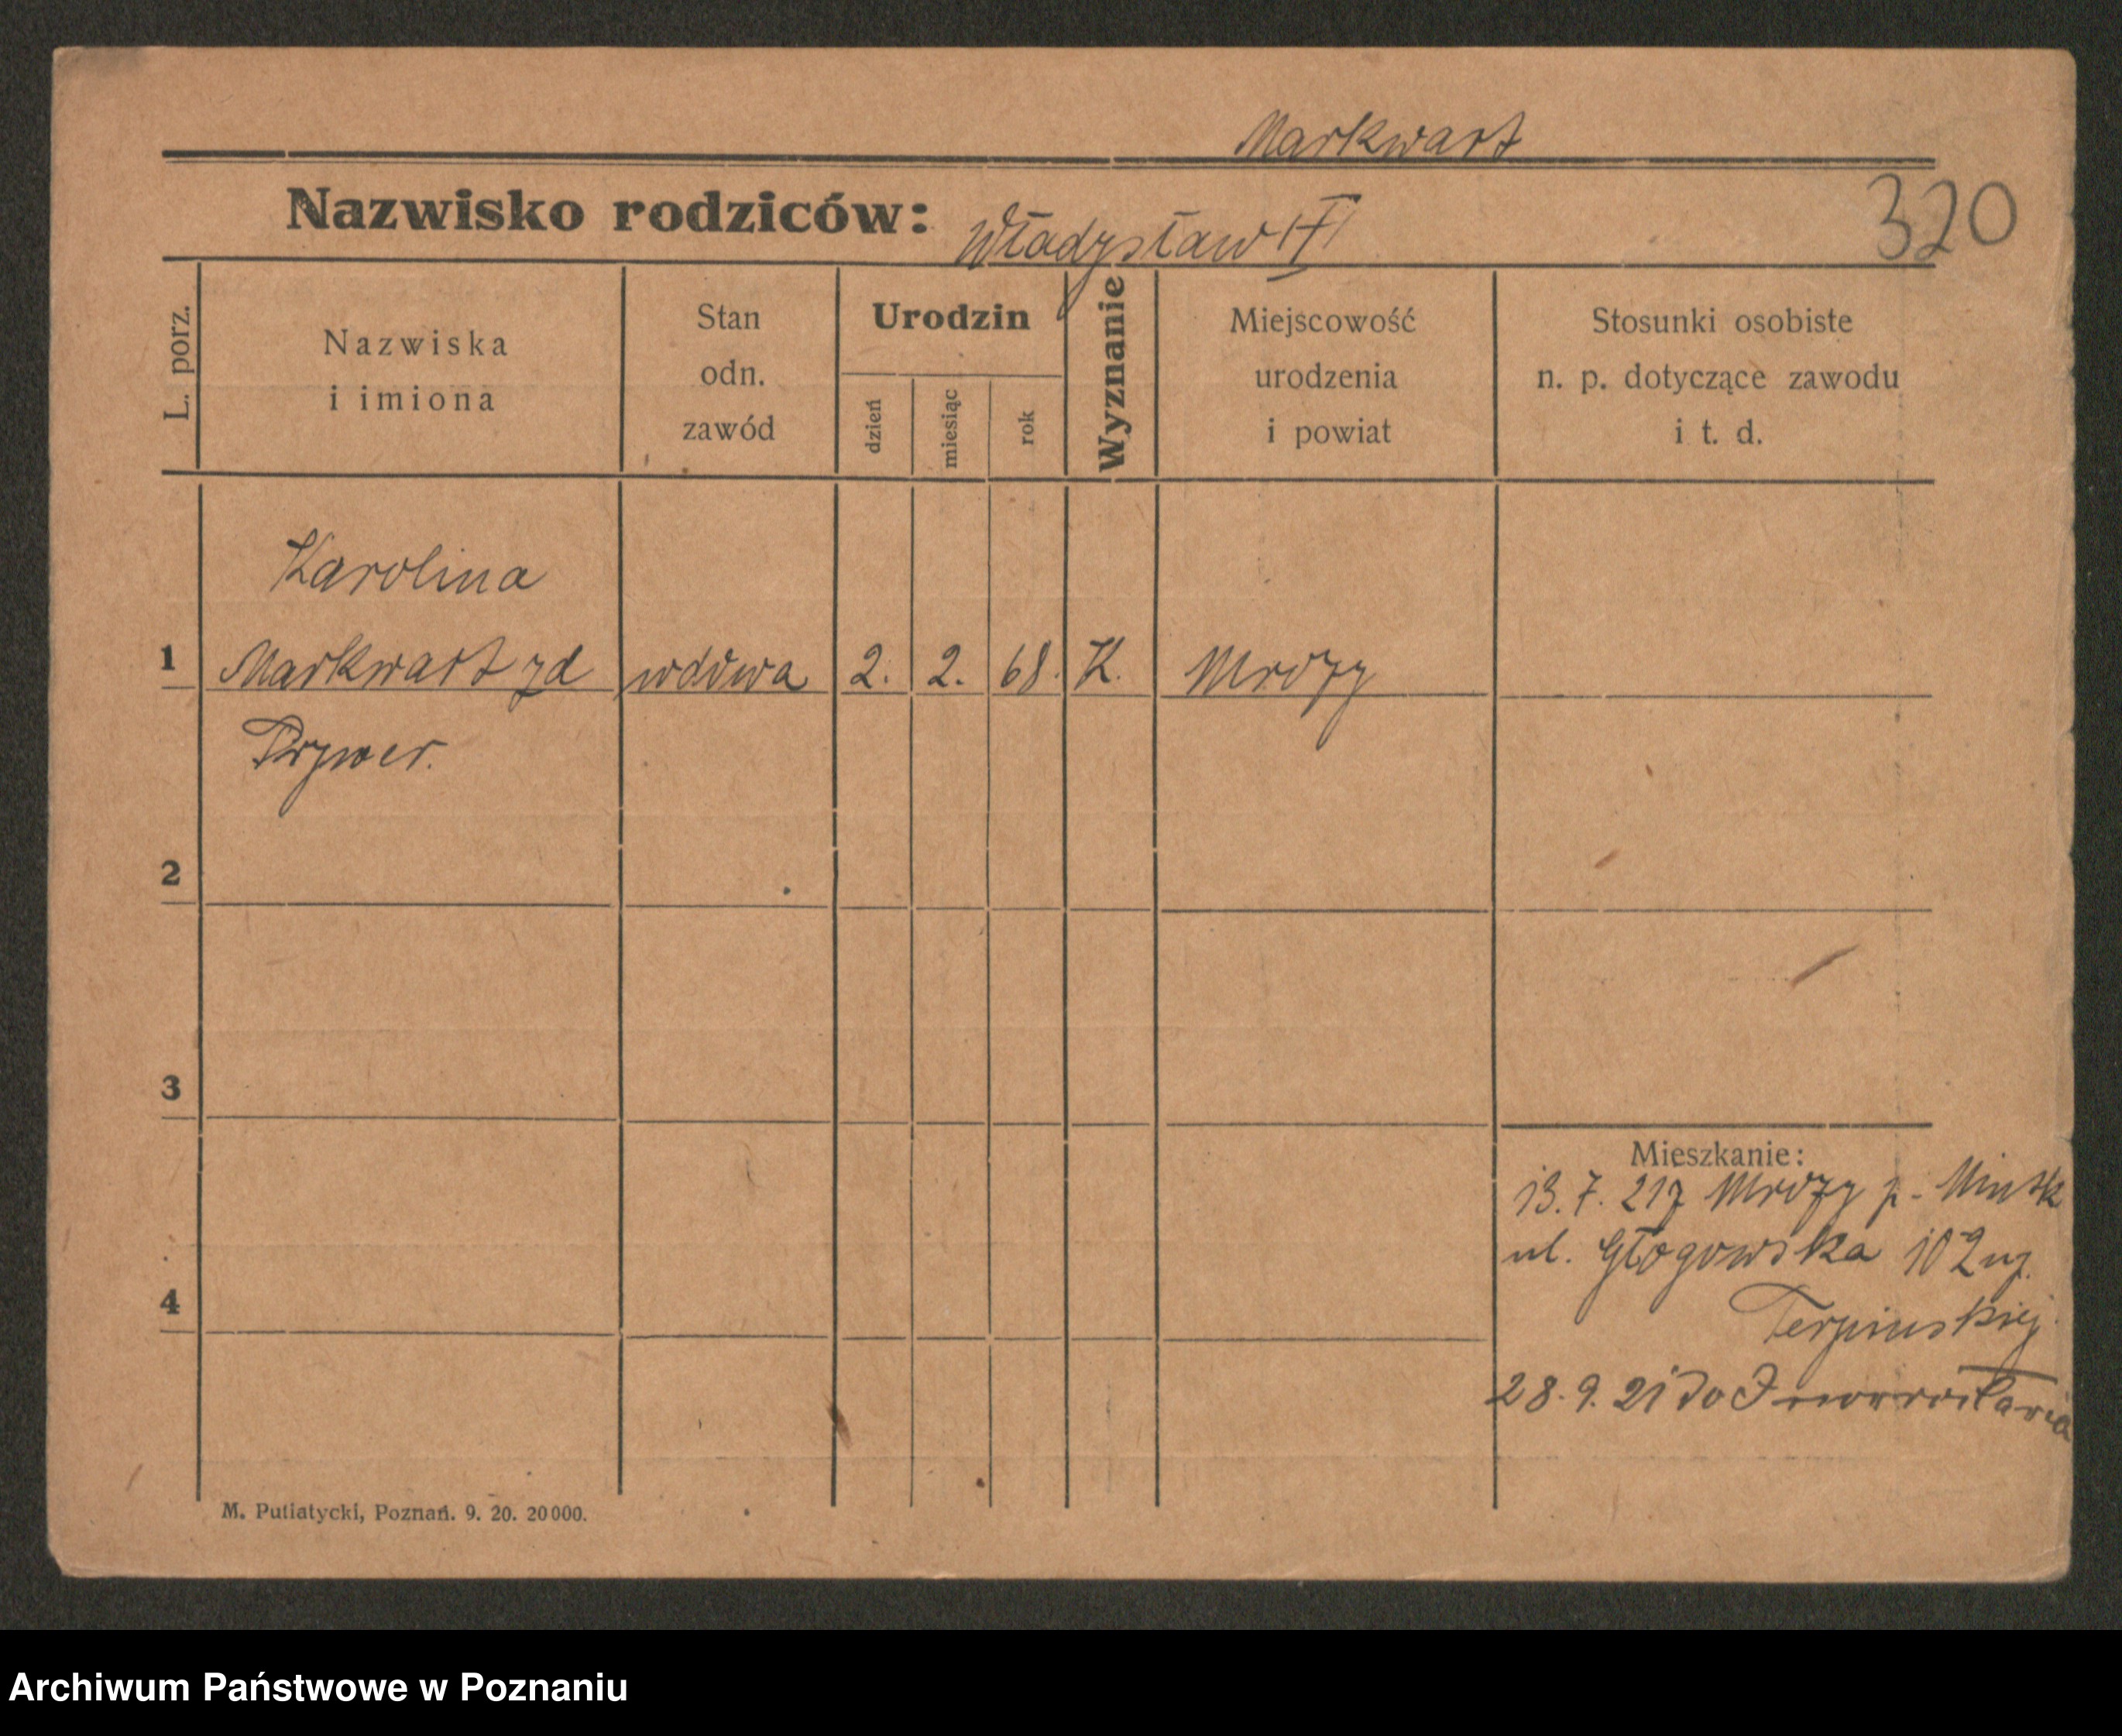 Markwart
Nazwisko rodziców: Władysław
320
L. porz.
Nazwiska
i imiona
Stan
odn.
zawód
Urodzin
dzień
miesiąc
rok
Wyznanie
Miejscowość
urodzenia
i powiat
Stosunki osobiste
n. p. dotyczące zawodu
i t. d.
Karolina
1 Markwart zd wdowa 2. 2. 68. K. Mrozy
Prywer.
2
3
Mieszkanie:
13. 7. 21 z Mrozy p. Minsk
ul. Głogowska 10
4
28. 9. 21 do Inowrocławia
M. Putiatycki, Poznań. 9. 20. 20 000.
Archiwum Państwowe w Poznaniu